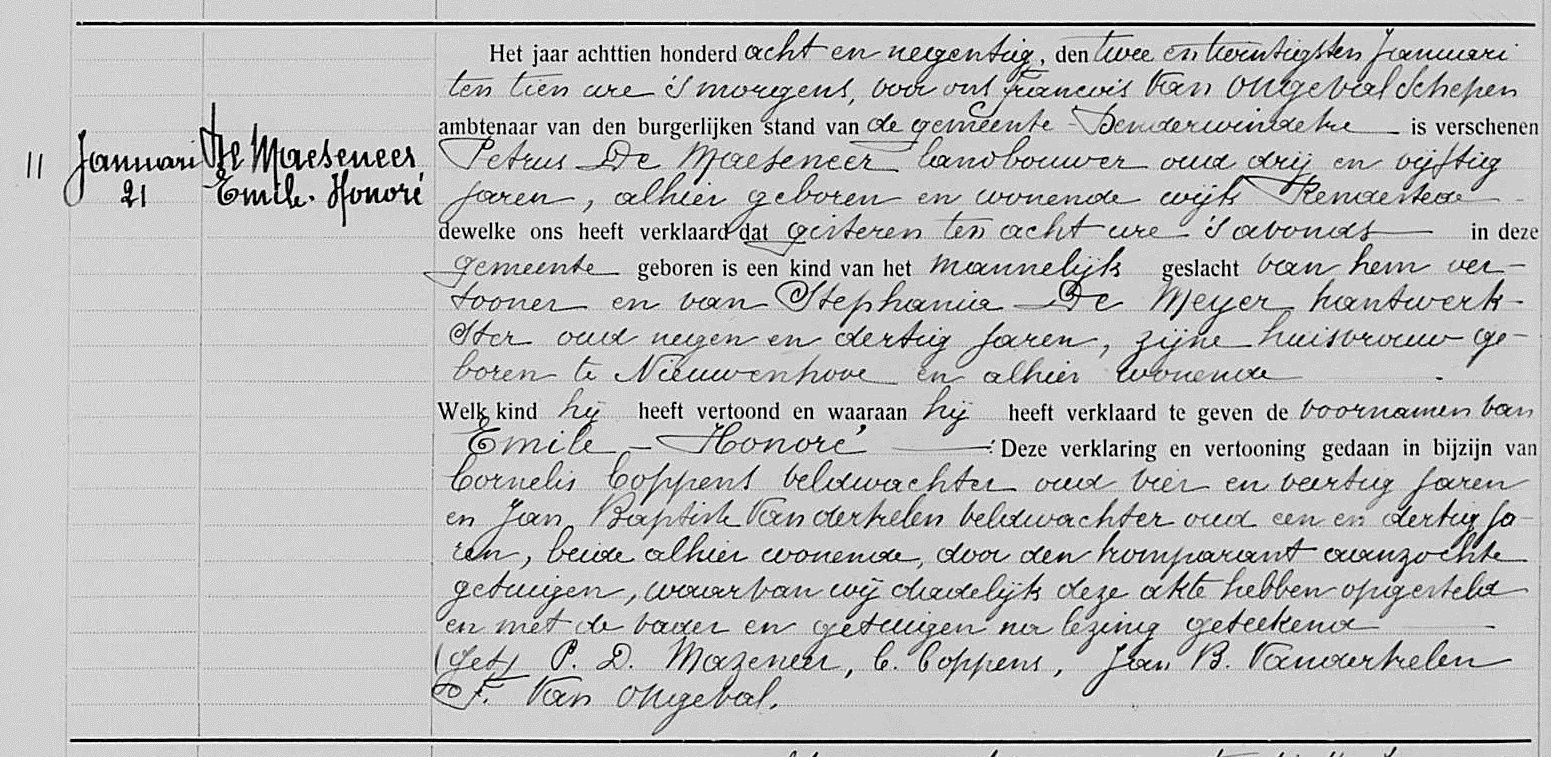 Het jaar achttien honderd acht en negentig, den twee en twintigsten Januari
ten tien ure 's morgens, voor ons francois Van Ongeval Schepen
ambtenaar van den burgerlijken stand van de gemeente Denderwindeke is verschenen
11 Januari De Maeseneer Petrus De Maeseneer landbouwer oud drij en vijftig
21 Emile. Honoré jaren, alhier geboren en wonende wijk
dewelke ons heeft verklaard dat gisteren ten acht ure 's avonds in deze
gemeente geboren is een kind van het mannelijk geslacht van hem ver-
tooner en van Stephania De Meyer hantwerk-
ster oud negen en dertig jaren, zijne huisvrouw ge-
boren te Nieuwenhove en alhier wonende
Welk kind hij heeft vertoond en waaraan hij heeft verklaard te geven de voornamen van
Emile - Honoré Deze verklaring en vertooning gedaan in bijzijn van
Cornelis Coppens veldwachter oud vier en veertig jaren
en Jan Baptist Vanderkelen veldwachter oud een en dertig ja-
ren, beide alhier wonende, door den komparant aanzochte
getuigen, waarvan wij dadelijk deze akte hebben opgesteld
en met de vader en getuigen na lezing geteekend
(get) P. D. Mazeneer, C. Coppens, Jan B. Vanderkelen
F. Van Ongeval.